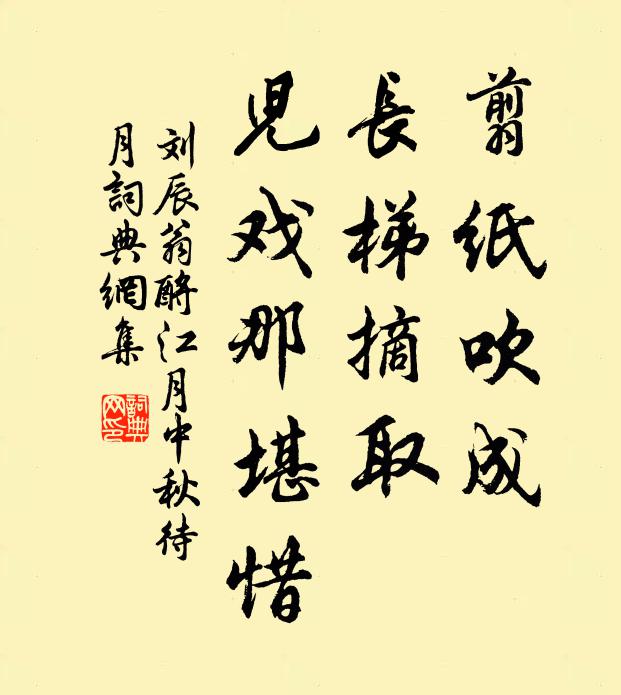 剪纸吹成
長梯摘取
児戏那堪惜
刘辰翁酹江月中秋待
月詞典網集
詞典
网印